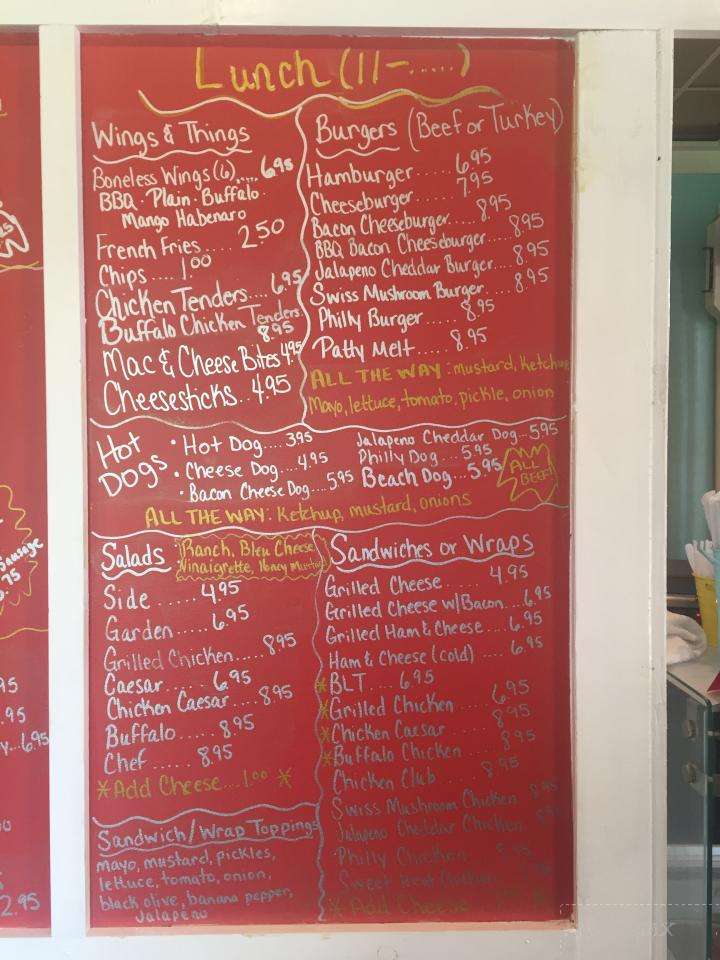 Lunch (11-.....)
Wings & Things
Boneless Wings (6).... 6.95
BBQ · Plain · Buffalo ·
Mango Habenaro
French Fries..... 2.50
Chips.... 1.00
Chicken Tenders.... 6.95
Buffalo Chicken Tenders
8.95
Mac & Cheese Bites 4.95
Cheesesticks... 4.95
Burgers (Beef or Turkey)
Hamburger...... 6.95
Cheeseburger...... 7.95
Bacon Cheeseburger.... 8.95
BBQ Bacon Cheeseburger..... 8.95
Jalapeno Cheddar Burger... 8.95
Swiss Mushroom Burger.... 8.95
Philly Burger...... 8.95
Patty Melt..... 8.95
ALL THE WAY: mustard, Ketchup
Mayo, lettuce, tomato, pickle, onion
Hot Dogs
• Hot Dog.... 3.95
• Cheese Dog.... 4.95
• Bacon Cheese Dog.... 5.95
Jalapeno Cheddar Dog...5.95
Philly Dog.... 5.95
Beach Dog....5.95
ALL BEEF!
ALL THE WAY: Ketchup, mustard, onions
Salads
Ranch, Bleu Cheese
Vinaigrette, Honey Mustard
Side ...... 4.95
Garden..... 6.95
Grilled Chicken..... 8.95
Caesar..... 6.95
Chicken Caesar.... 8.95
Buffalo..... 8.95
Chef...... 8.95
* Add Cheese...1.00 *
Sandwich/Wrap Toppings
mayo, mustard, pickles,
lettuce, tomato, onion,
black olive, banana pepper,
Jalapeno
Sandwiches or Wraps
Grilled Cheese...... 4.95
Grilled Cheese w/Bacon.... 6.95
Grilled Ham & Cheese.... 6.95
Ham & Cheese (cold).... 6.95
* BLT.... 6.95
* Grilled Chicken..... 6.95
* Chicken Caesar.... 8.95
* Buffalo Chicken.... 8.95
Chicken Club... 8.95
Swiss Mushroom Chicken 8.95
Jalapeno Cheddar Chicken
Philly Chicken
* Add Cheese
Sausage
.75
95
.95
6.95
2.95